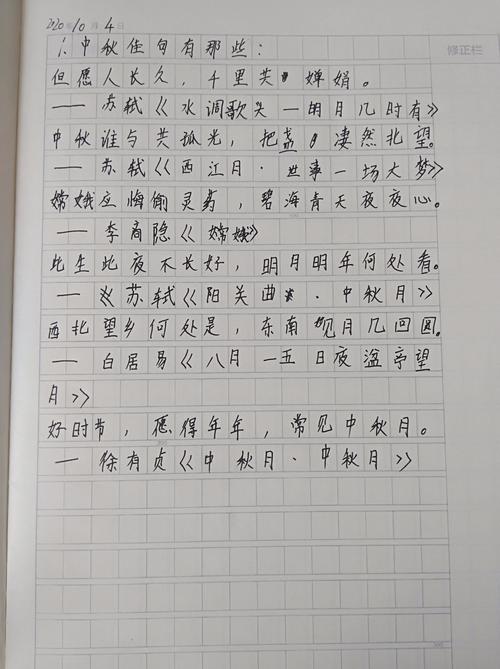 2020年10月4日
修正栏
1.中秋佳句有那些:
但愿人长久，千里共婵娟。
—— 苏轼《水调歌头一明月几时有》
中秋谁与共孤光，把盏凄然北望。
—— 苏轼《西江月·世事一场大梦》
嫦娥应悔偷灵药，碧海青天夜夜心。
—— 李商隐《嫦娥》
此生此夜不长好，明月明年何处看。
—— 《苏轼《阳关曲·中秋月》
西北望乡何处是，东南见月几回圆。
—— 白居易《八月一五日夜湓亭望
月》
好时节，愿得年年，常见中秋月。
—— 徐有贞《中秋月·中秋月》